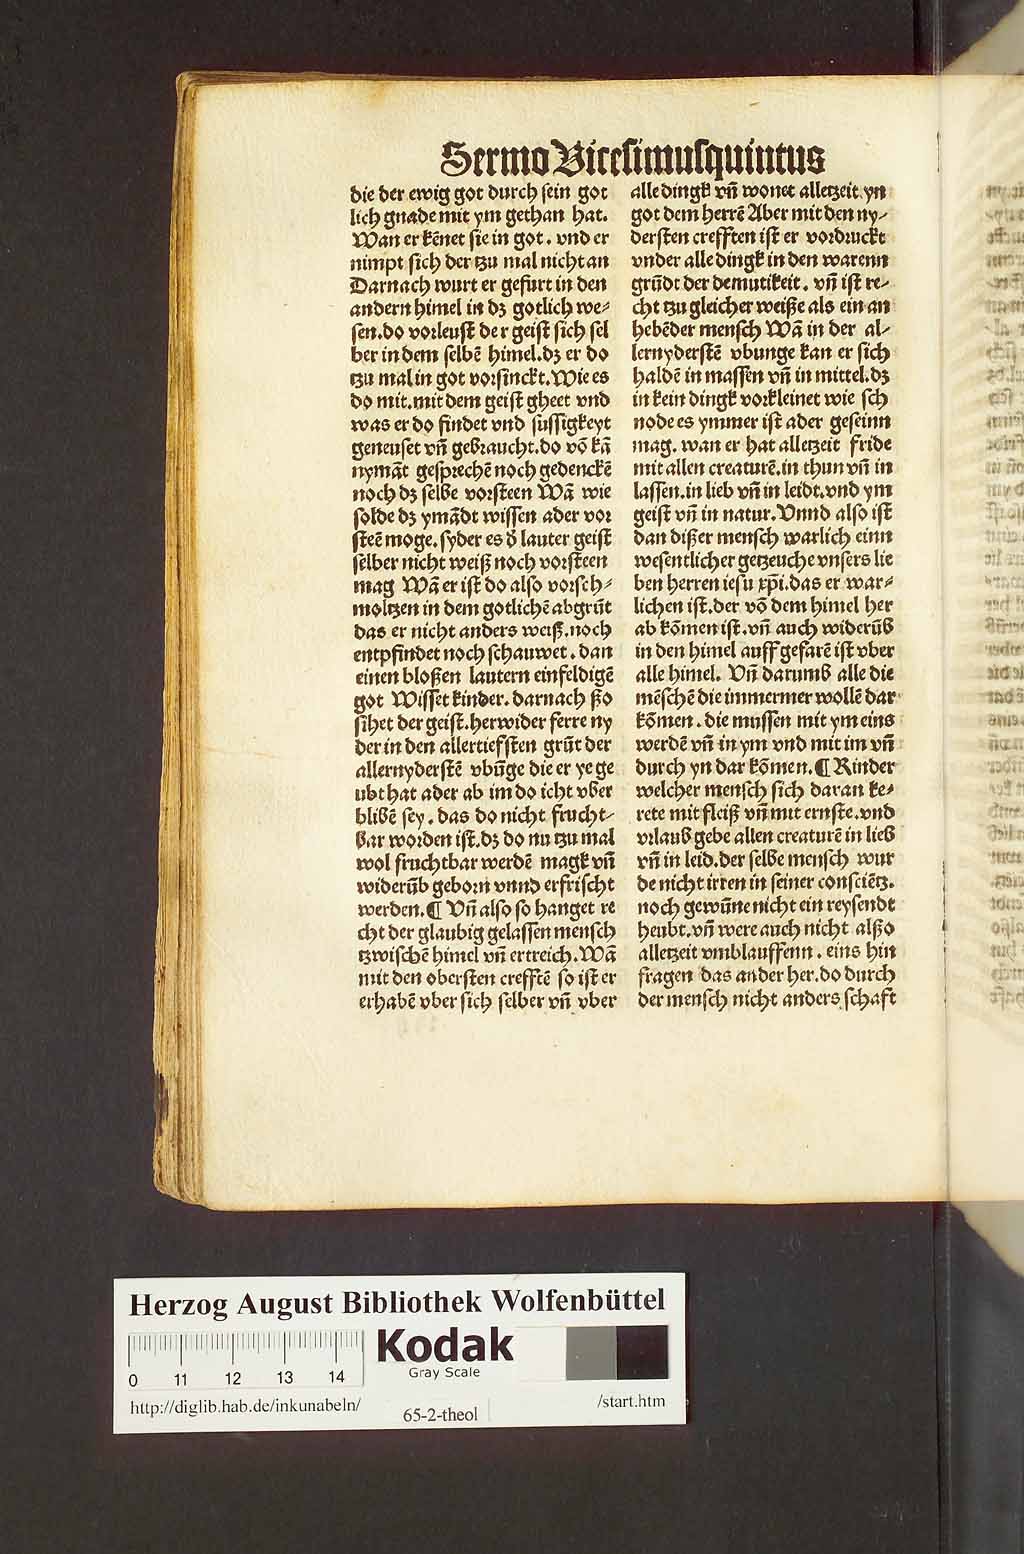 Sermo Vicesimusquintus
die der ewig got durch sein got
lich gnade mit ym gethan hat.
Wan er kēnet sie in got. vnd er
nimpt sich der tzu mal nicht an
Darnach wurt er gefurt in den
andern himel in dz gotlich we⸗
sen. do vorleust der geist sich sel
ber in dem selbē himel. dz er do
tzu mal in got vorsinckt. Wie es
do mit. mit dem geist gheet vnd
was er do findet vnd sussigkeyt
geneuset vn̄ gebraucht. do vō kā
nymāt gesprechē noch gedenckē
noch dz selbe vorsteen Wā wie
solde dz ymādt wissen ader vor
steē moge. syder es d̄ lauter geist
selber nicht weiß noch vorsteen
mag Wā er ist do also vorsch⸗
moltzen in dem gotlichē abgrūt
das er nicht anders weiß. noch
entpfindet noch schauwet. dan
einen bloßen lautern einfeldigē
got Wisset kinder. darnach ßo
sihet der geist. herwider ferre ny
der in den allertiefsten grūt der
allernyderstē vbūge die er ye ge
ubt hat ader ab im do icht vber
blibē sey. das do nicht frucht⸗
bar worden ist. dz do nu tzu mal
wol fruchtbar werdē magk vn̄
widerūb geborn vnnd erfrischt
werden. ¶ Vn̄ also so hanget re
cht der glaubig gelassen mensch
tzwischē himel vn̄ ertreich. Wā
mit den obersten crefftē so ist er
erhabē vber sich selber vn̄ vber
alle dingk vn̄ wonet alletzeit yn
got dem herrē Aber mit den ny⸗
dersten crefften ist er vordruckt
vnder alle dingk in den warenn
grūdt der demutikeit. vn̄ ist re⸗
cht tzu gleicher weiße als ein an
hebēder mensch Wā in der al⸗
lernyderstē vbunge kan er sich
haldē in massen vn̄ in mittel. dz
in kein dingk vorkleinet wie sch
node es ymmer ist ader geseinn
mag. wan er hat alletzeit fride
mit allen creaturē. in thun vn̄ in
lassen. in lieb vn̄ in leidt. vnd ym
geist vn̄ in natur. Vnnd also ist
dan dißer mensch warlich einn
wesentlicher getzeuche vnsers lie
ben herren iesu xp̄i. das er war⸗
lichen ist. der vō dem himel her
ab kōmen ist. vn̄ auch widerūb
in den himel auff gefarē ist vber
alle himel. Vn̄ darumb alle die
mēschē die immermer wollē dar
kōmen. die mussen mit ym eins
werdē vn̄ in ym vnd mit im vn̄
durch yn dar kōmen. ¶ Kinder
welcher mensch sich daran ke⸗
rete mit fleiß vn̄ mit ernste. vnd
vrlaub gebe allen creaturē in lieb
vn̄ in leid. der selbe mensch wur
de nicht irren in seiner consciētz.
noch gewūne nicht ein reysendt
heubt. vn̄ were auch nicht alßo
alletzeit vmblauffenn. eins hin
fragen das ander her. do durch
der mensch nicht anders schaft
Herzog August Bibliothek Wolfenbüttel
Kodak
Gray Scale
0 11 12 13 14
http://diglib.hab.de/inkunabeln/
65-2-theol
/start.htm